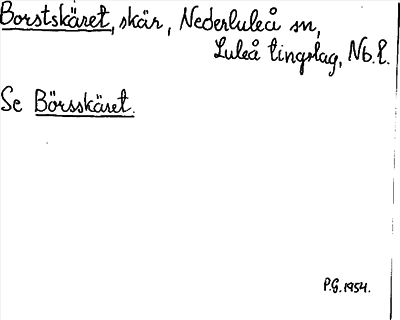 Borstskäret, skär, Nederluleå sn,
Luleå tingslag, Nb.l.
Se Börsskäret.
P.G. 1954.